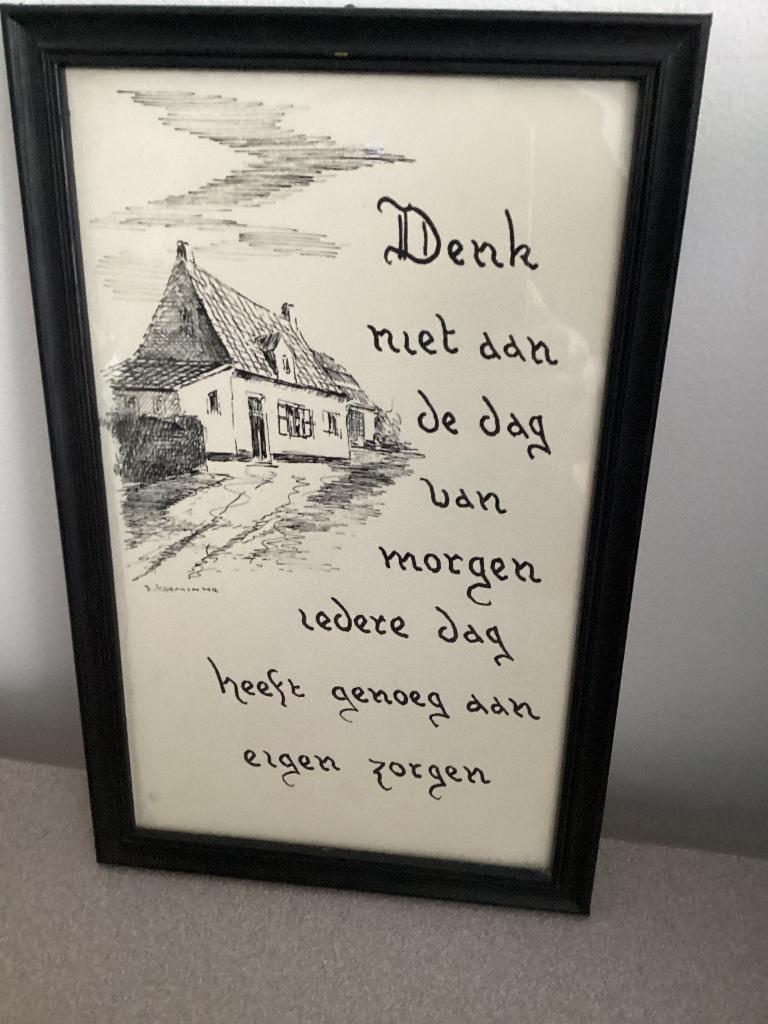 Denk
niet aan
de dag
van
morgen
iedere dag
heeft genoeg aan
eigen zorgen